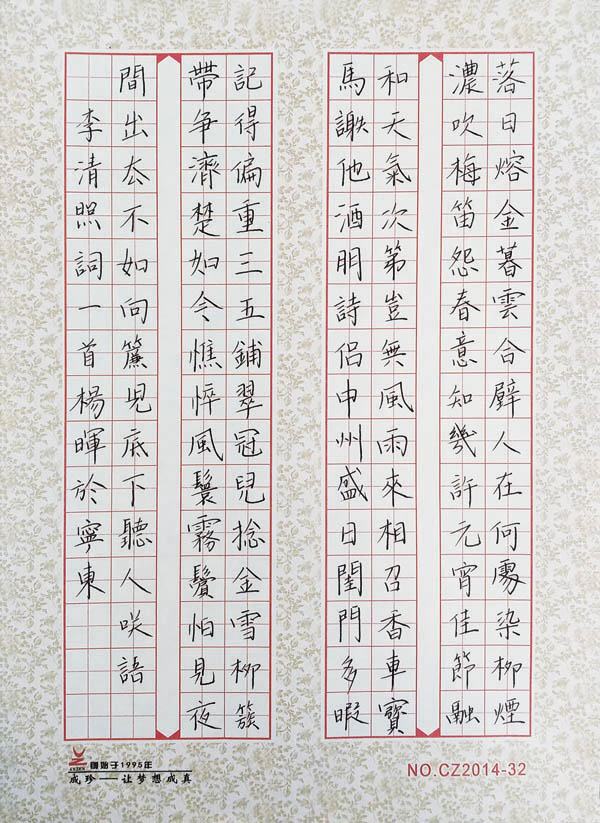 落日熔金暮雲合璧人在何處染柳煙
濃吹梅笛怨春意知幾許元宵佳節融
和天氣次第豈無風雨來相召香車寶
馬謝他酒朋詩侶中州盛日閨門多暇
記得偏重三五鋪翠冠兒捻金雪柳簇
帶争濟楚如今憔悴風鬟霧鬢怕見夜
間出去不如向簾兒底下聽人咲語
李清照詞一首楊暉於寧東
创始于1995年
成珍——让梦想成真
NO.CZ2014-32